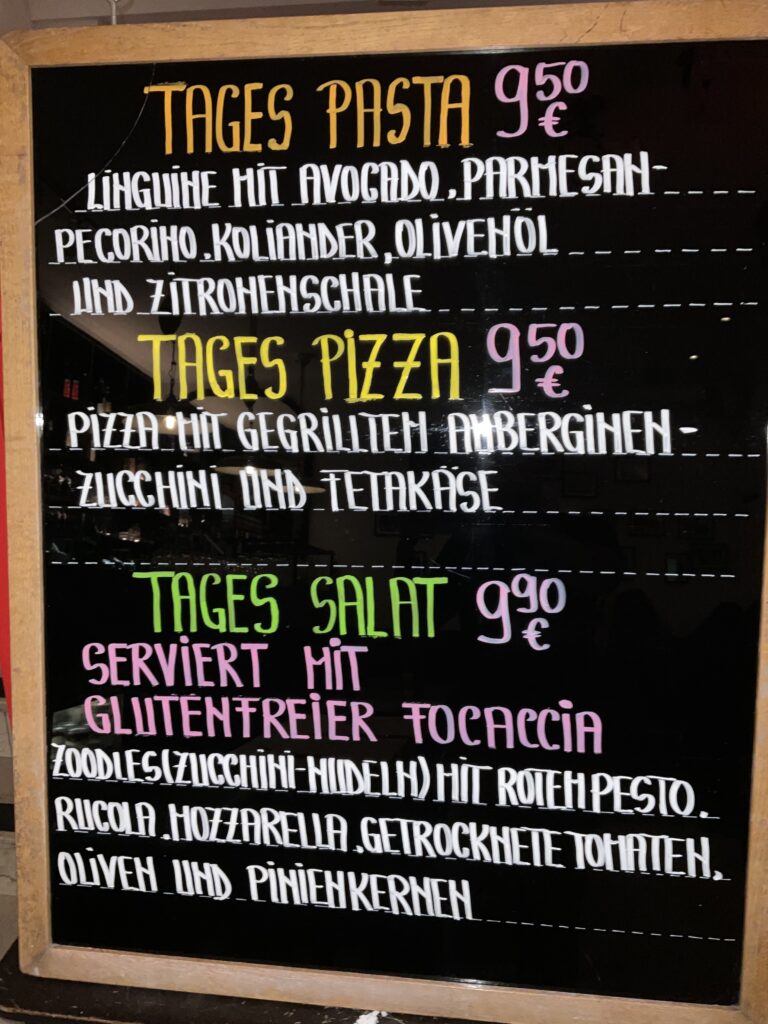 TAGES PASTA 9,50 €
LINGUINE MIT AVOCADO, PARMESAN-
PECORINO, KOLIANDER, OLIVENÖL
UND ZITRONENSCHALE
TAGES PIZZA 9,50 €
PIZZA MIT GEGRILLTEN AUBERGINEN-
ZUCCHINI UND FETAKÄSE
TAGES SALAT 9,90 €
SERVIERT MIT
GLUTENFREIER FOCACCIA
ZOODLES (ZUCCHINI-NUDELN) MIT ROTEM PESTO,
RUCOLA, MOZZARELLA, GETROCKNETE TOMATEN,
OLIVEN UND PINIENKERNEN